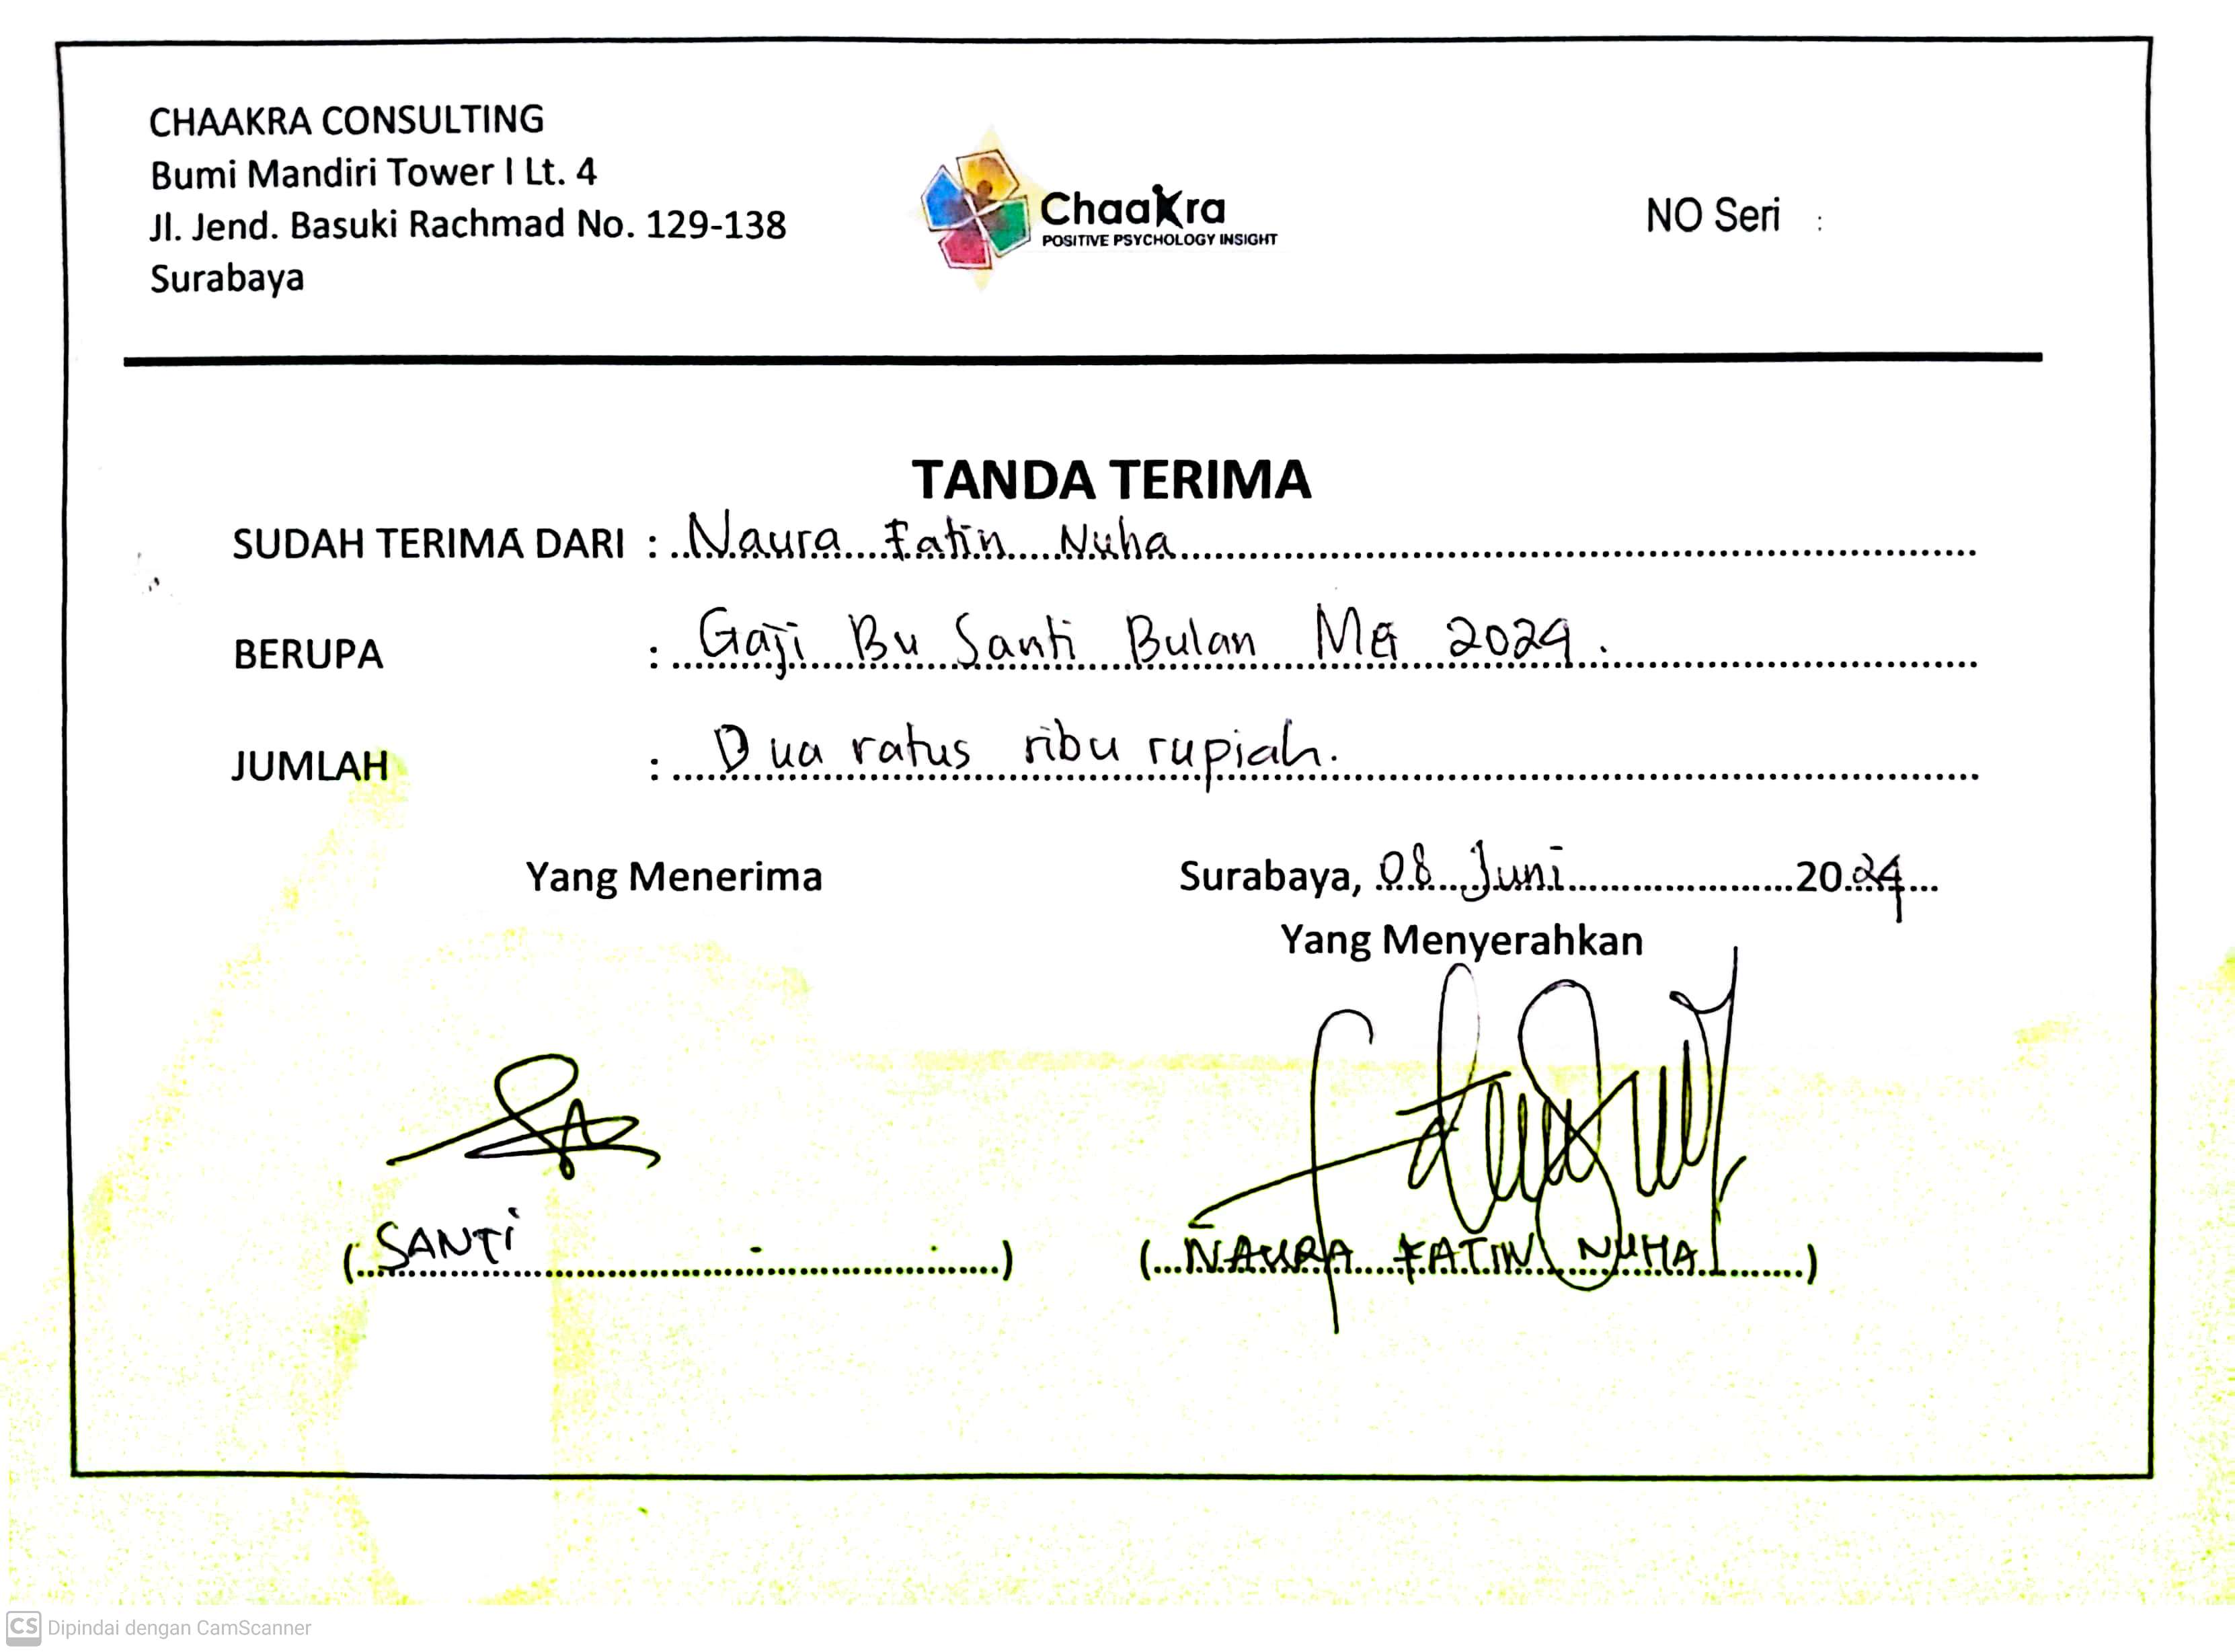 CHAAKRA CONSULTING
Bumi Mandiri Tower I Lt. 4
Jl. Jend. Basuki Rachmad No. 129-138
Surabaya
Chaakra
POSITIVE PSYCHOLOGY INSIGHT
NO Seri :
TANDA TERIMA
SUDAH TERIMA DARI : Naura Fatin Nuha
BERUPA : Gaji Bu Santi Bulan Mei 2024.
JUMLAH : Dua ratus ribu rupiah.
Yang Menerima
Surabaya, 08 Juni 2024
Yang Menyerahkan
(SANTI)
(NAURA FATIN NUHA)
CS Dipindai dengan CamScanner